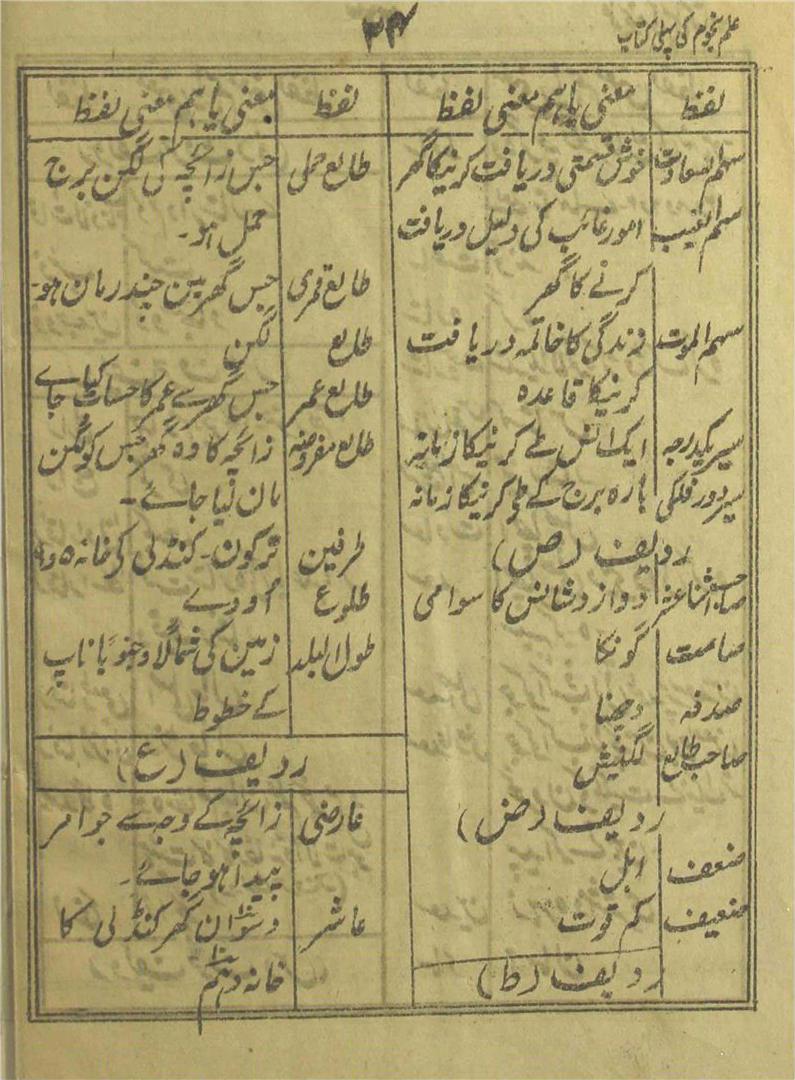 علم نجوم کی پہلی کتاب
۲۴
لفظ معنی یا ہم معنی لفظ
سہم السعادت خوش قسمتی دریافت کرنیکا گھر
سہم الغیب امور غائب کی دلیل دریافت
کرنے کا گھر
سہم الموت زندگی کا خاتمہ دریافت
کرنیکا قاعدہ
سیر یکدرجہ ایک انش طے کرنیکا زمانہ
سیر دور فلکی بارہ برج کے طے کرنیکا زمانہ
ردیف (ص)
صاحب اثنا عشر دوازدشانس کا سوامی
صامت گونگا
صدقہ دچھنا
صاحب طالع لگنیش
ردیف (ض)
ضعف ابل
ضعیف کم قوت
ردیف (ط)
لفظ معنی یا ہم معنی لفظ
طالع حملی جس زائچہ کی لگن برج
حمل ہو۔
طالع قمری جس گھر مین چندرمان ہو۔
طالع لگن
طالع عمر جس گھر سے عمر کا حساب کیا جاے
طالع مفروضہ زائچہ کا وہ گھر جس کو لگن
مان لیا جائے۔
طرفین ترکون۔ کنڈلی کے خانہ ۵ و ۹
طلوع اودے
طول البلد زمین کی شمالاً و جنوباً ناپ
کے خطوط
ردیف (ع)
عارضی زائچہ کے وجہ سے جو امر
پیدا ہو جائے۔
عاشر دسواں گھر کنڈلی کا
خانہ دہم